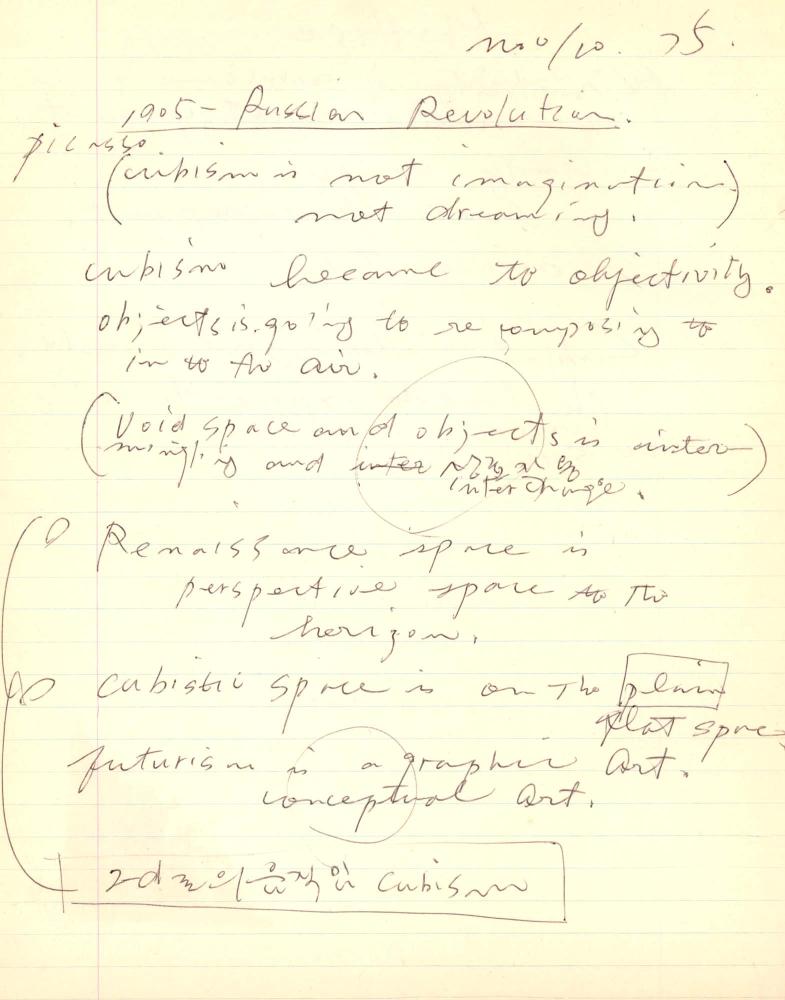 Nov/10. 75.
1905- Russian Revolution.
picasso
(cubism is not imagination
not dreaming.)
cubism became to objectivity.
objects is going to re composing to
in to the air.
(Void space and objects is inter
mingling and inter
interchange.)
Renaissance space is
perspective space to the
horizon.
cubistic space is on the plain
flat space
futurism is a graphic Art.
conceptual Art.
2d로의 움직임 cubism